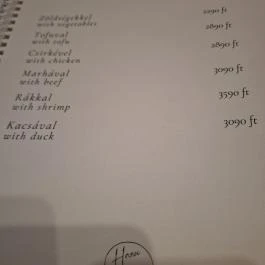 Zöldségekkel 2290 ft
with vegetables
Tofuval 2890 ft
with tofu
Csirkével 2890 ft
with chicken
Marhával 3090 ft
with beef
Rákkal 3590 ft
with shrimp
Kacsával 3090 ft
with duck